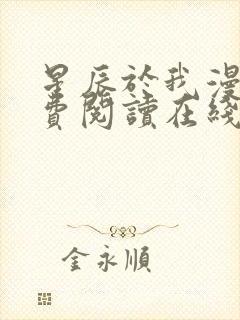 星辰於我漫
費閱讀在綫
金永順